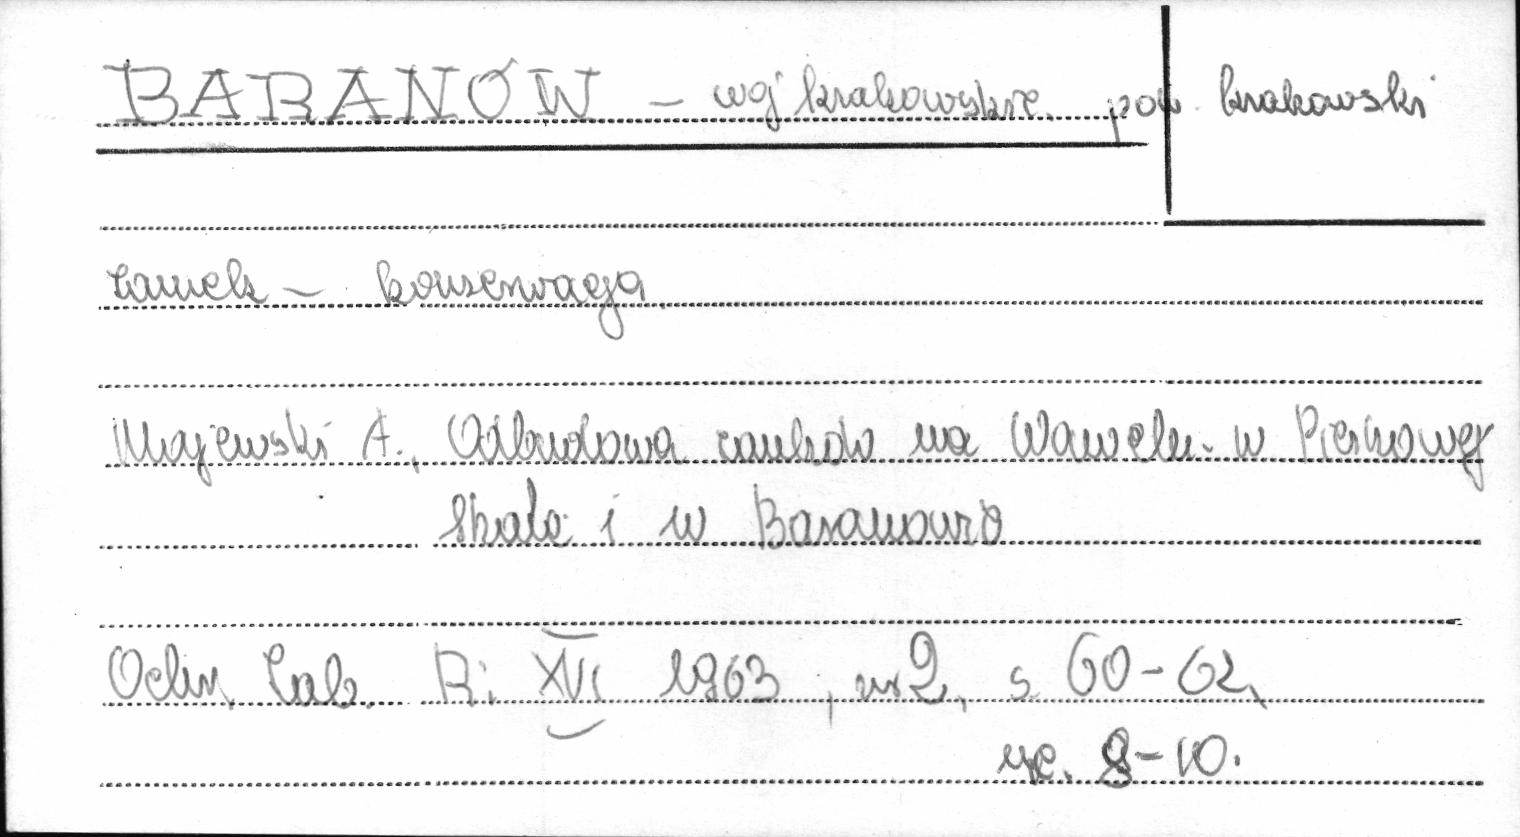 BARANÓW - woj krakowskie. pow. krakowski
zamek - konserwacja
Majewski A., Odbudowa zamków na Wawelu. w Pieskowej
Skale i w Baranowie
Ochr. Zab. R. XVI 1963, nr 2, s 60-62,
ryc. 8-10.